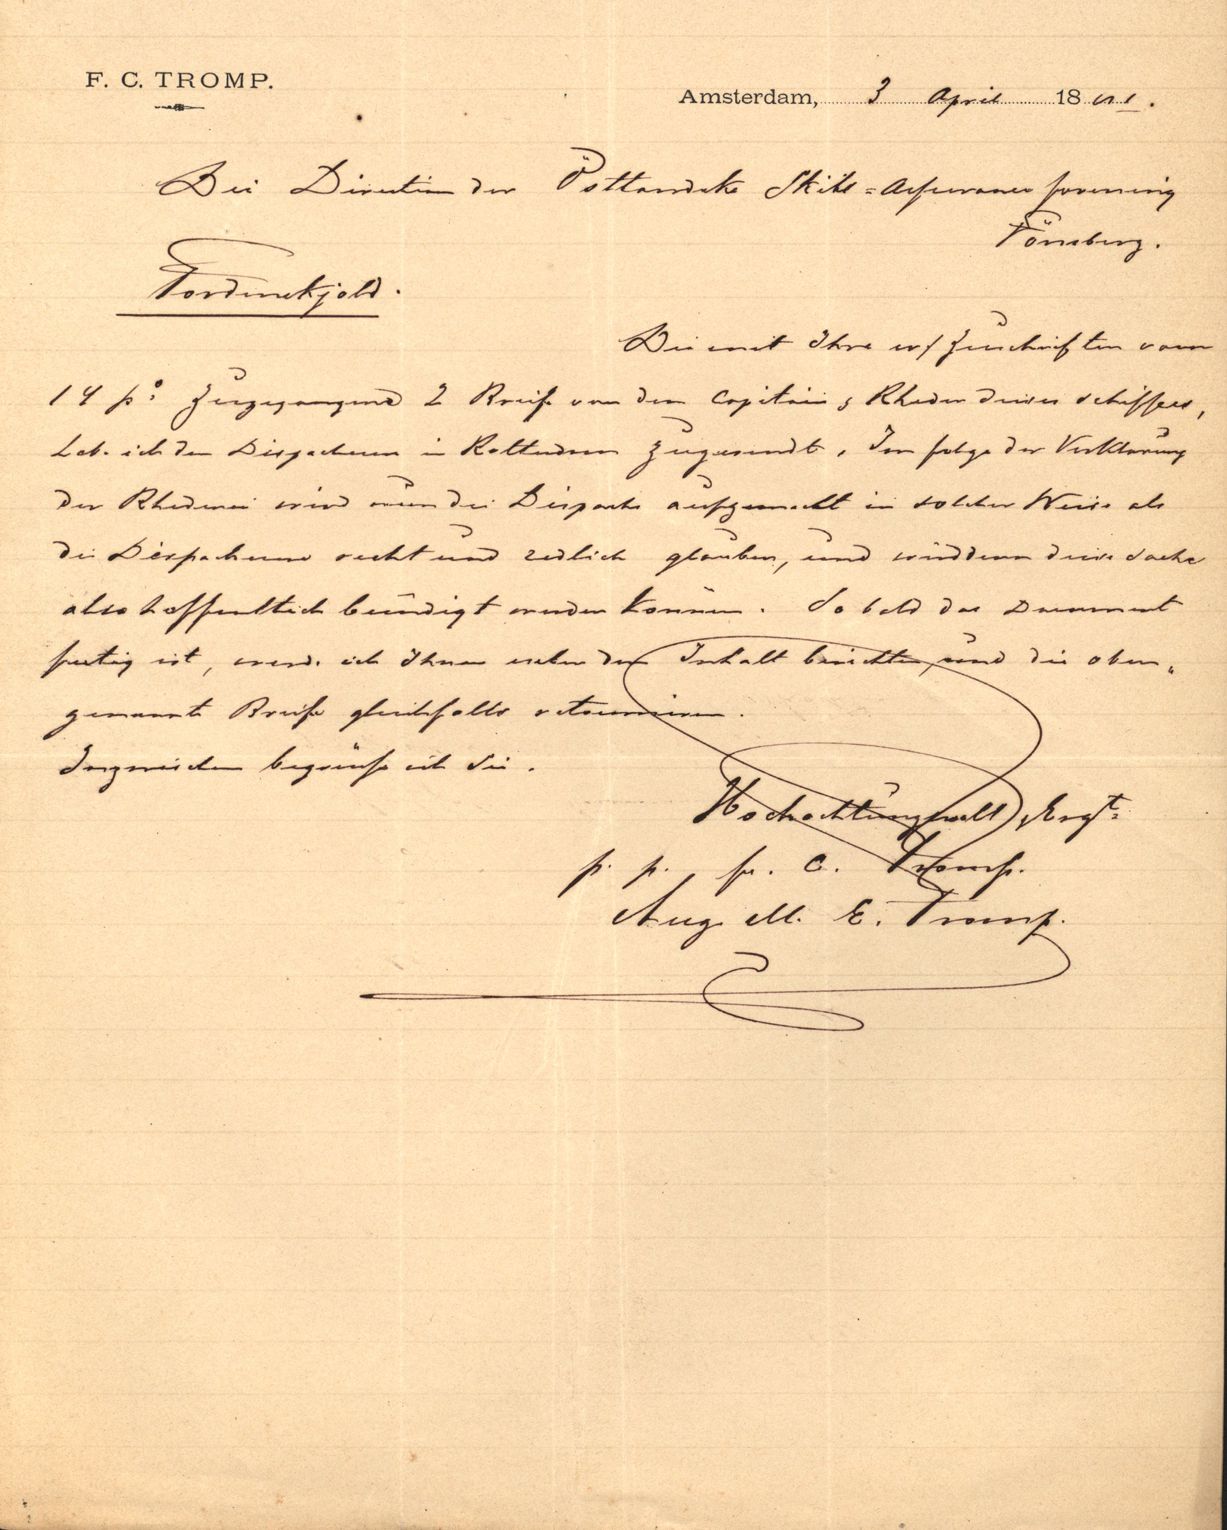 F. C. TROMP.
Amsterdam, 3 April 18
Die Direction der Östlandske Skibs=Assurance forening
Tönsberg.
Tordenskjold.
Die mit Ihre w/ Zuschriften vom
14 po: zugegangene 2 Briefe von dem Capitain & Rheder dieses schiffes,
hab. ich den Dispacheur in Rotterdam zugesandt. Im folge der Verklärung
der Rhederei wird nun die Dispache aufgemacht in solcher Weise als
die Dispacheure recht und redlich glauben, und wird denn diese Sache
also hoffentlich beündigt werden können. So bald das Document
fertig ist, werde ich Ihnen ueber den Inhalt berichten, und die oben„
genannte Briefe gleichfalls retourniren.
Inzwischen begrüsse ich Sie.
Hochachtungsvoll, Ergt:
p. p. fr. C. Tromp.
Aug. M. E. Tromp.